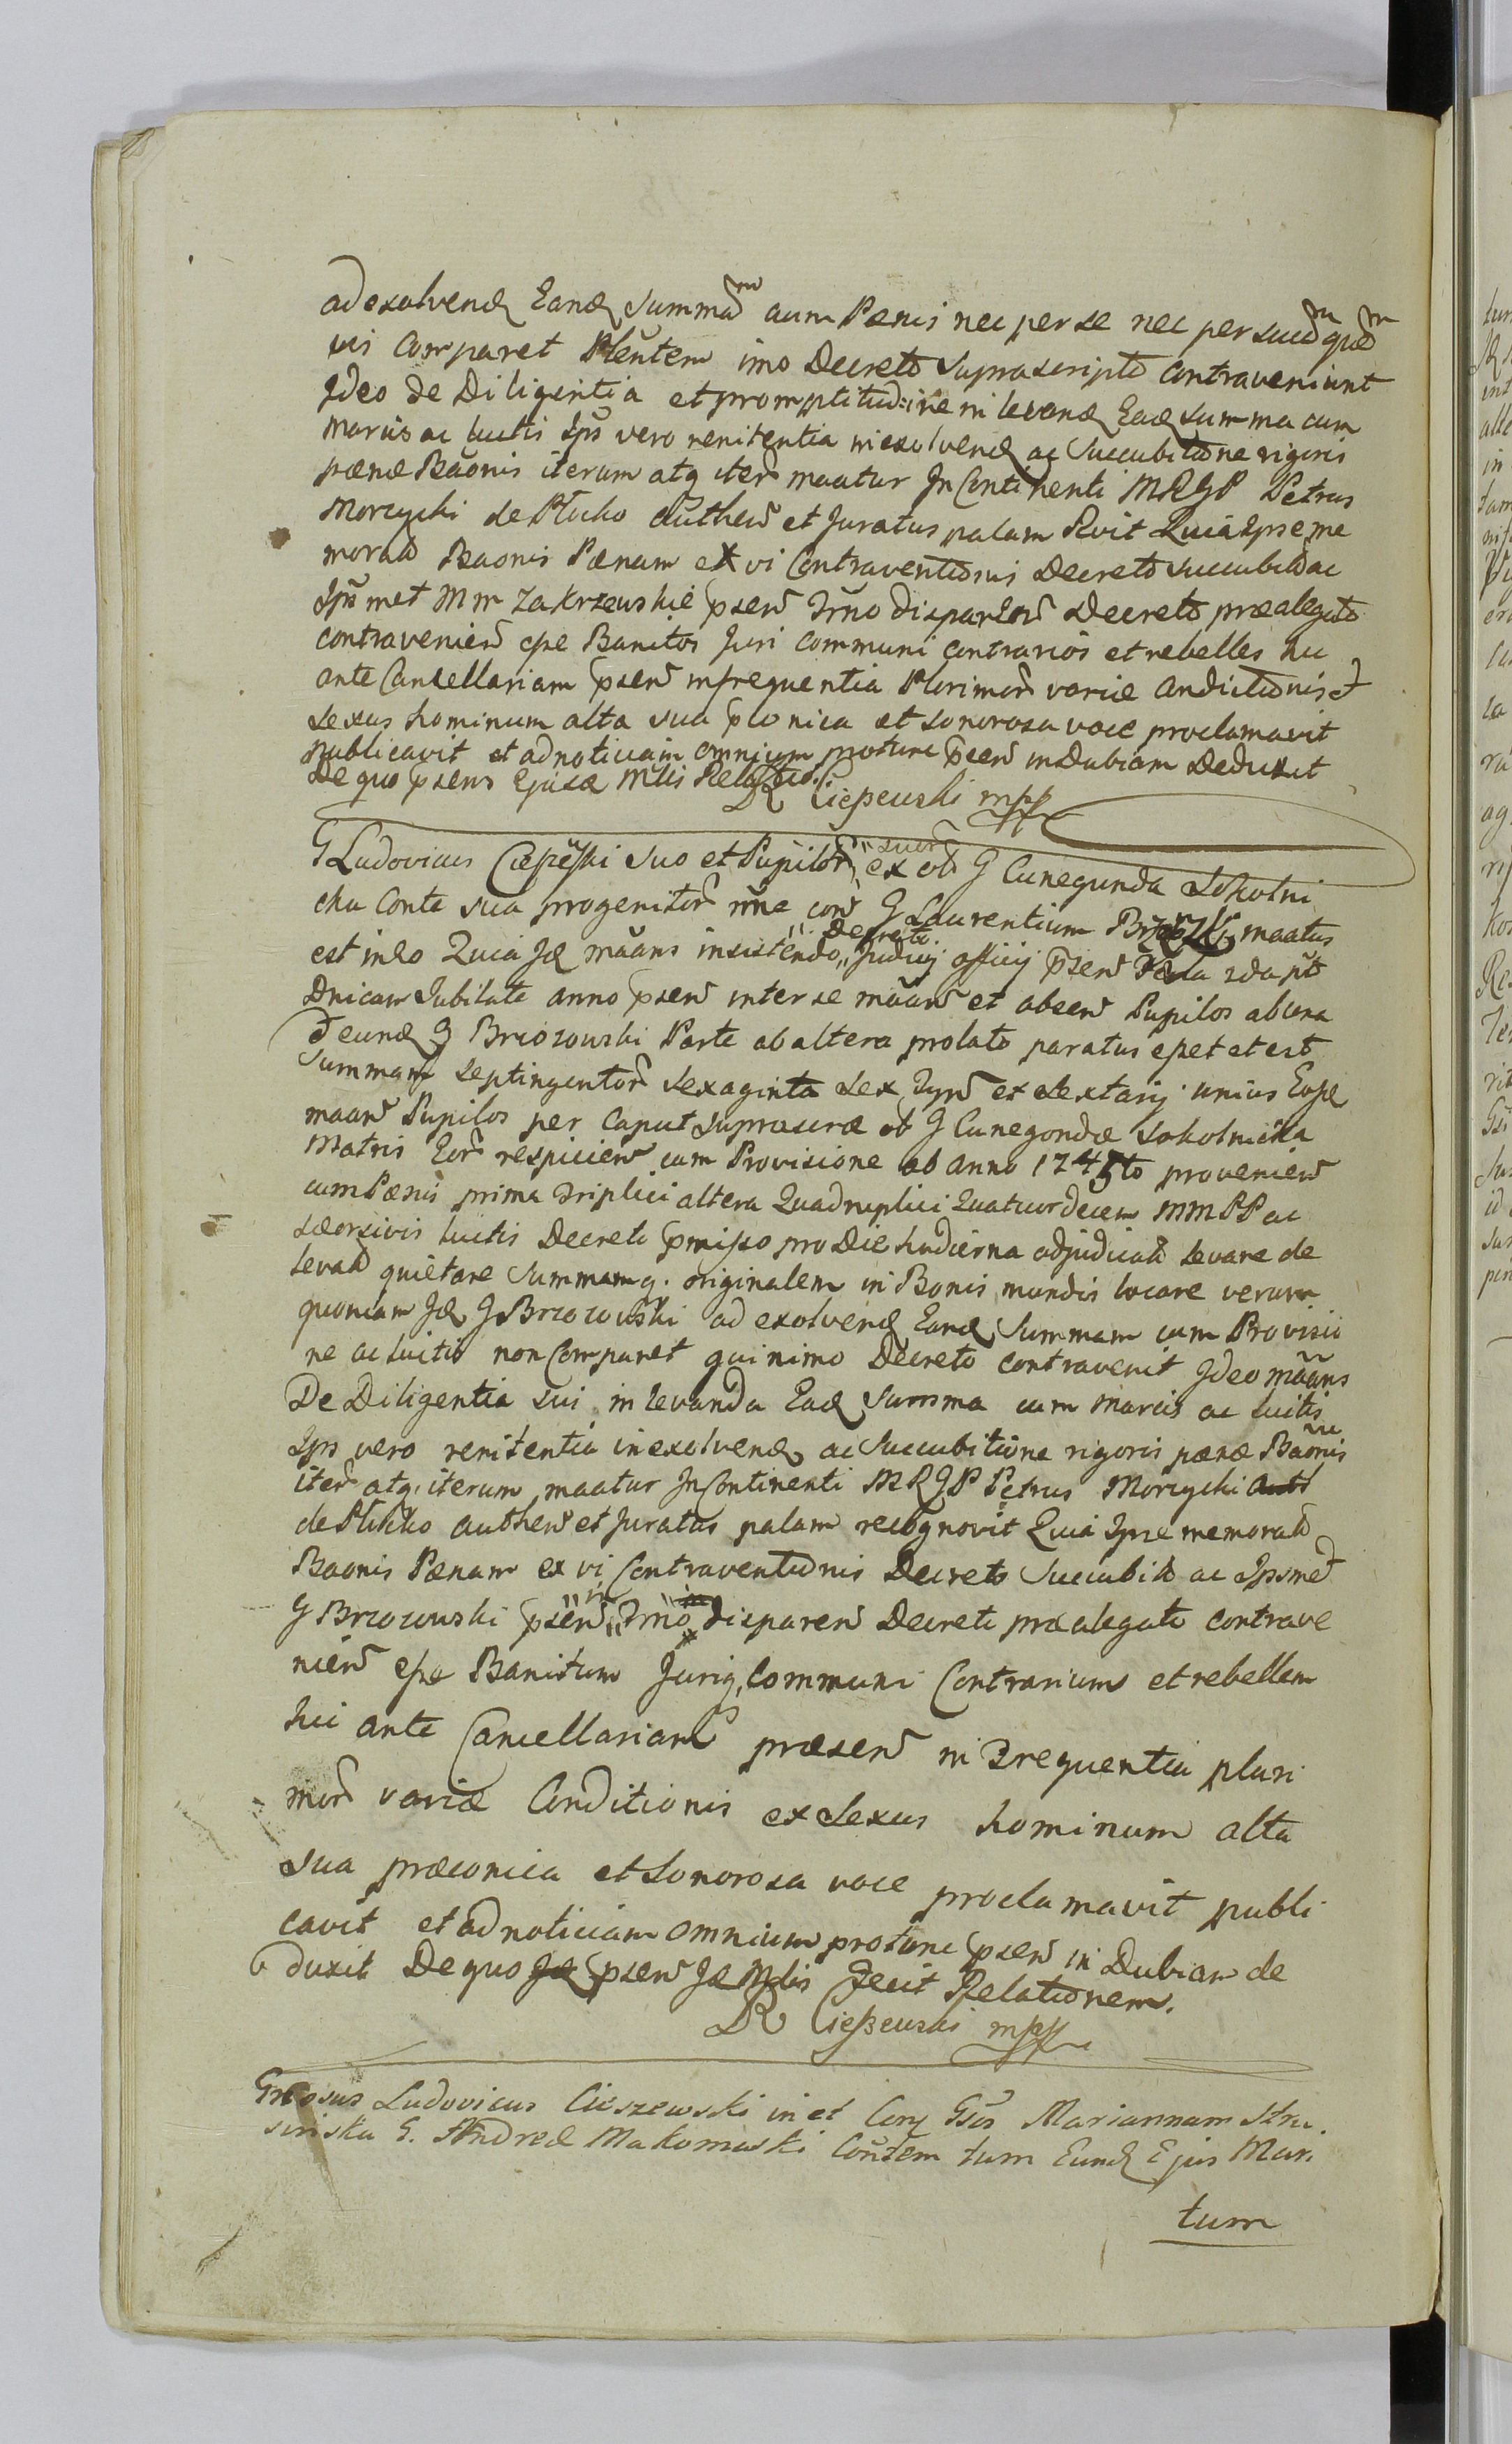 ad exolvend Eand Summam cum Pænis nec per se nec per suum quem
vis Comparet Plentem imo Decreto Suprascripto Contraveniunt
Ideo de Diligentia et promptitudine in levand Ead Summa cum
Marcis ac luitis Ips vero renitentia in exolvend ac Succubitione rigoris
pænæ Baonis iterum atq iter maatur In Continenti MRGP Petrus
Morzycki de Plocko authen et Juratus palam Rvit Quia Ipse me
morat Baonis Pænam ex vi Contraventionis Decreto succubit ac
Ips met Mm Zakrzewskie psen Trno disparen Decreto præalegato
contravenien esse Banitos Juri Communi contrarios et rebelles huc
ante Cancellariam psen in frequentia Plorimor variæ Conditionis et
sexus hominum alta sua pconica et sonorosa voce proclamavit
publicavit et ad noticiam omnium protunc psen in Dubiam Deduxit
De quo psens Ejusd Mlis Relatio.
DR Cieszewski mpp
G Ludovicus Cieszewski suo et Pupilor suor ex olt G Cunegunda Sokolni
cka Conte sua progenitor nne con G Laurentium Brzozows maatus
est in eo Quia Id maans insistendo Decreto Judicij officij psen Fer 2da pt
Dnicam Jubilate anno psen inter se maan et absen Pupilos ab una
et eund G Brzozowski Parte ab altera prolato paratus esset et est
Summam Septingentor Sexaginta Sex Tynf et Sextarij unius Eosd
maan Pupilos per Caput supraser ol G Cunegondæ Sokolnicka
Matris Eor respicien cum Provisione ab anno 1745to provenien
cum Pænis prima Triplici altera Quadruplici Quatuordecem MM PP ac
seorsivis luitis Decreto pmisso pro Die hodierna adjudicat levare de
levat quietare Summamq. originalem in Bonis mundis locare verum
quoniam Id G Brzozowski ad exolvend Eand Summam cum Provisio
ne ac luitis non Comparet quinimo Decreto contravenit Ideo maans
De Diligentia sui in levanda Ead Summa cum marcis ac luitis
Ips vero renitentia in exolvend ac Succubitione rigoris pænæ Baonis
iter atq iterum maatur In Continenti MRGP Petrus Morzycki
de Plocko authen et Juratus palam recognovit Quia Ipse memorat
Baonis Pænam ex vi Contraventionis Decreto Succubit ac Ipsmet
G Brzozowski psen in Trno disparen Decreto præalegato contrave
nien esse Banitum Juriq Communi Contrarium et rebellem
huc ante Cancellariam præsen in Frequentia pluri
mor variæ Conditionis et Sexus hominum alta
sua præconica et sonorosa voce proclamavit publi
cavit et ad noticiam omnium protunc psen in Dubiam de
duxit De quo psen Id Mlis Fecit Relationem.
DR Cieszewski mpp
Gnrosus Ludovicus Cieszewski in et Con Gsos Mariannam Stru
sinska G. Andreæ Makomaski Contem tum Eund Ejus Mari
tum